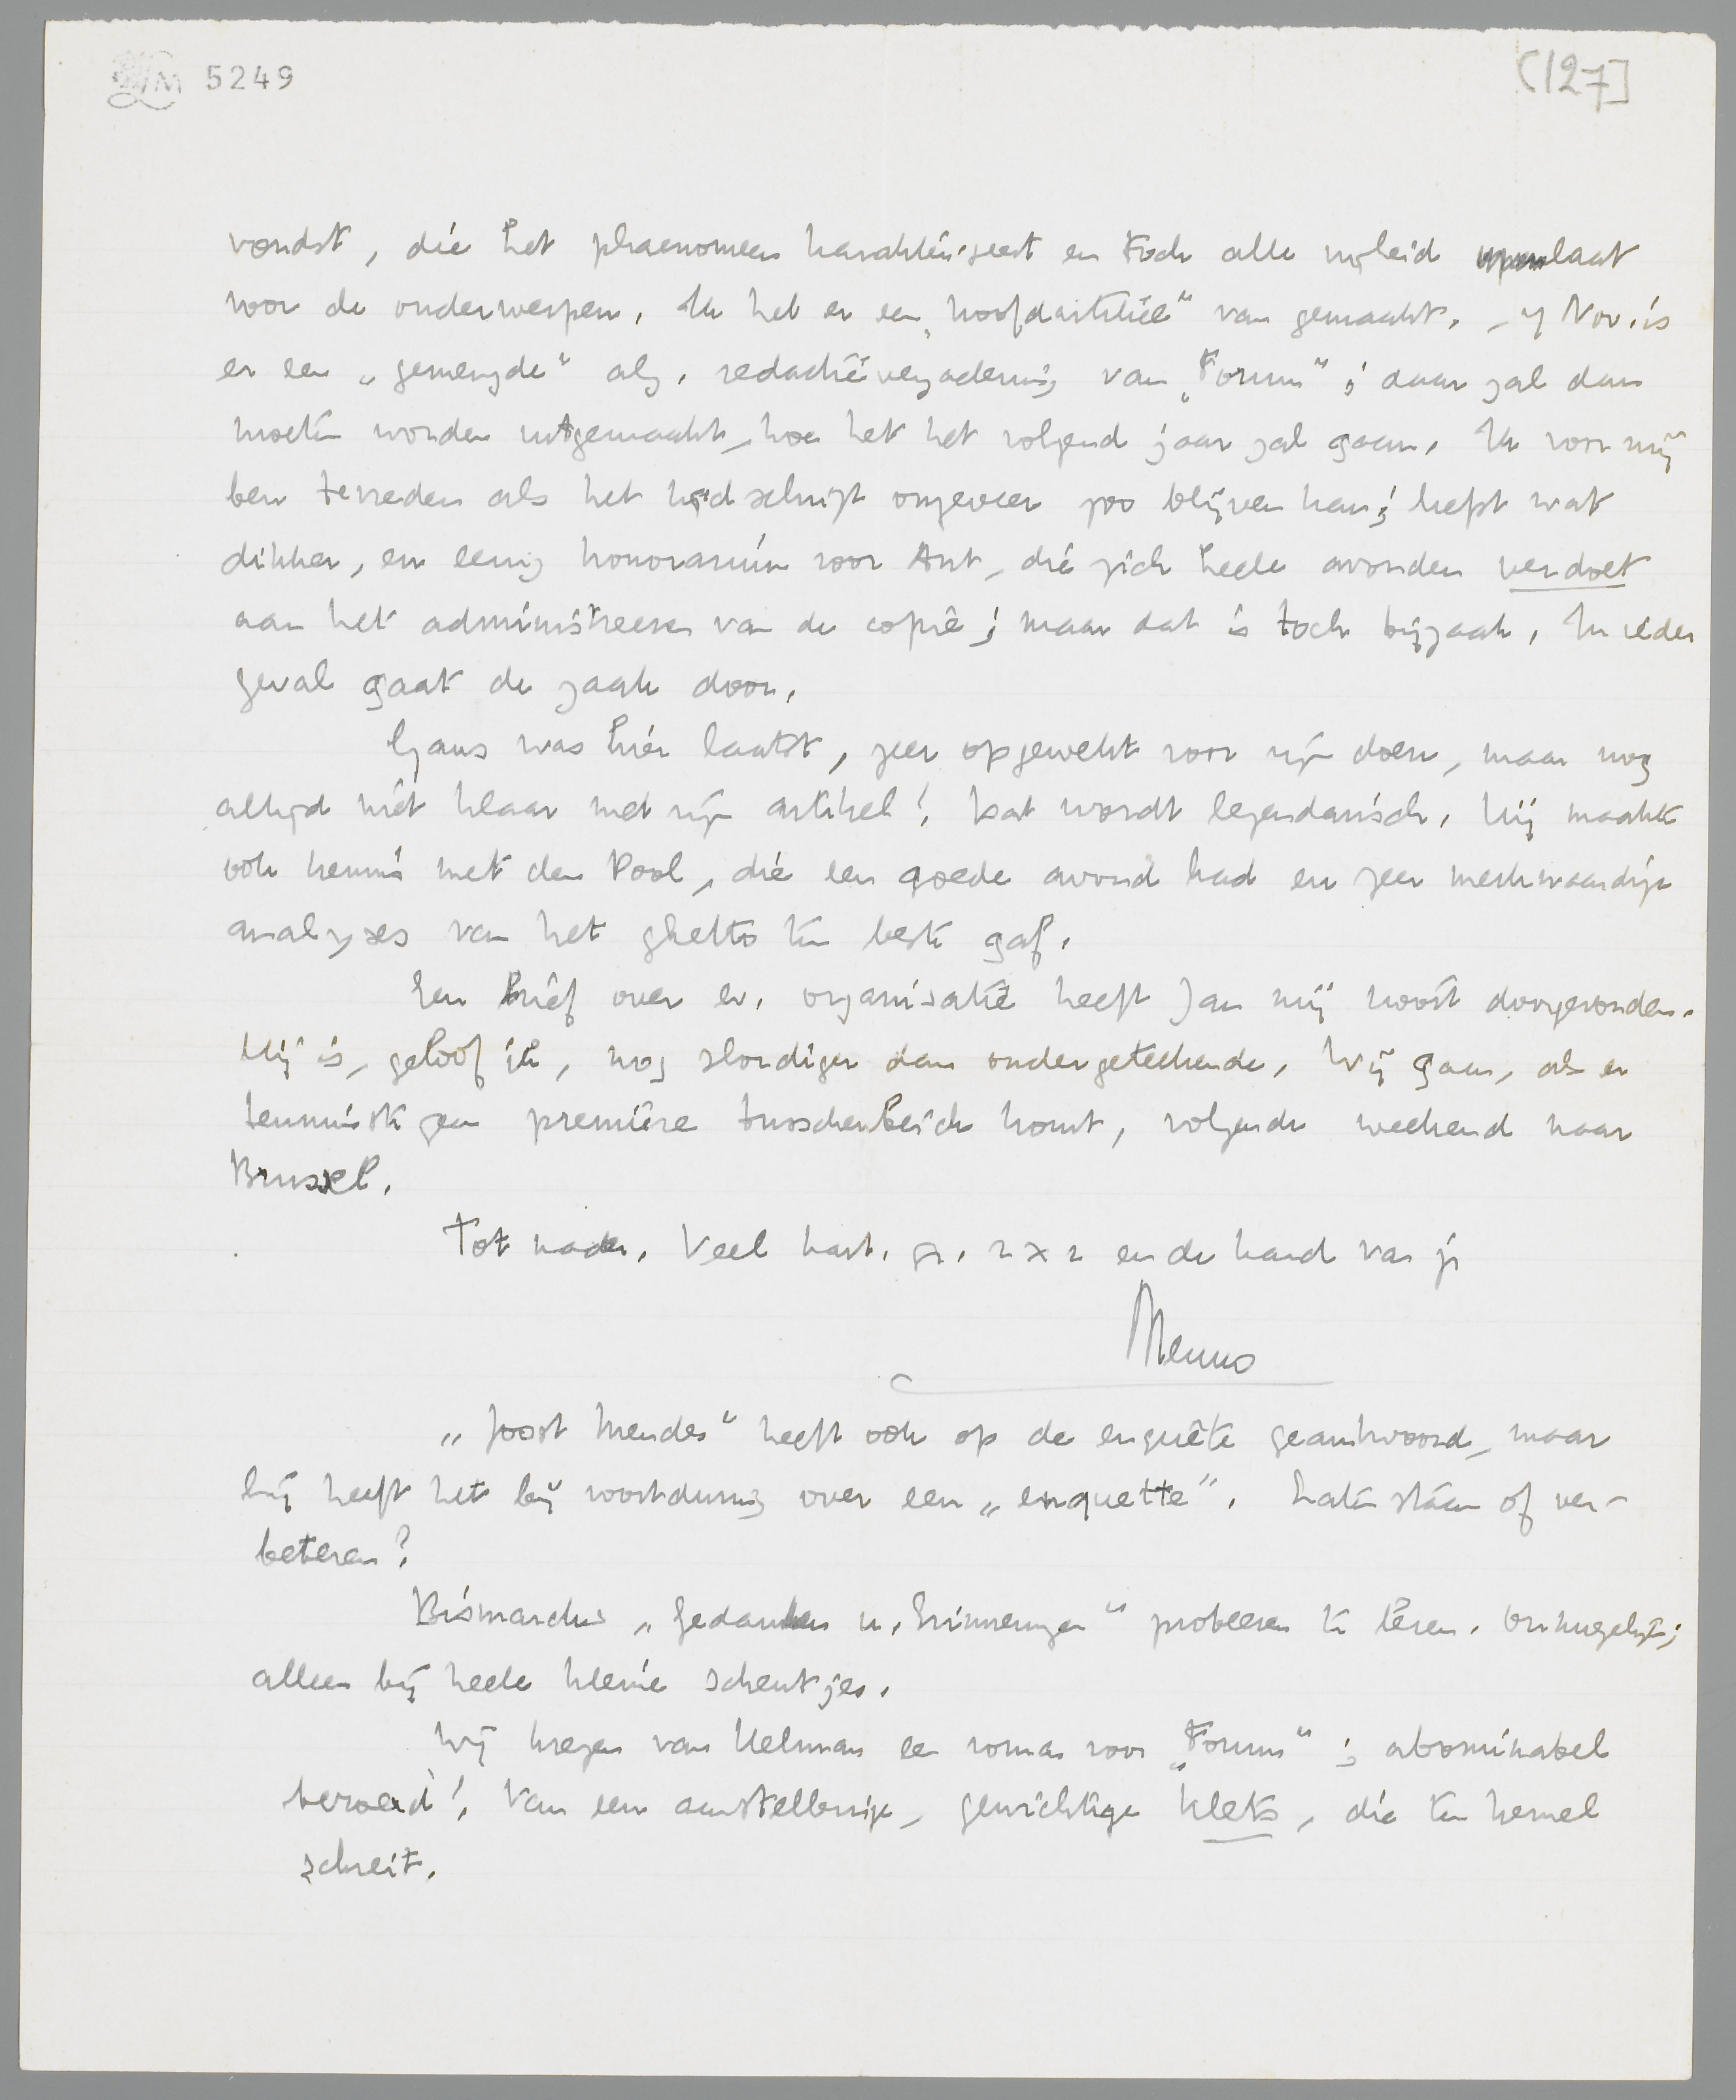 LM 5249
[127]
vondst, die het phaenomeen karakteriseert en toch alle vrijheid laat
voor de onderwerpen. Ik heb er een „hoofdartikel" van gemaakt. – 4 Nov. is
er een „gemengde" alg. redactievergadering van „Forum"; daar zal dan
moeten worden uitgemaakt, hoe het het volgend jaar zal gaan. Ik voor mij
ben tevreden als het tijdschrift ongeveer zoo blijven kan; liefst wat
dikker, en eenig honorarium voor Ant, die zich heele avonden verdoet
aan het administreeren van de copie; maar dat is toch bijzaak. In ieder
geval gaat de zaak door.
Gans was hier laatst, zeer opgewekt voor zijn doen, maar nog
altijd niet klaar met zijn artikel! Dat wordt legendarisch. Hij maakte
ook kennis met den Pool, die een goede avond had en zeer merkwaardige
analyses van het ghetto ten beste gaf.
Een brief over ev. organisatie heeft Jan mij nooit doorgezonden.
Hij is, geloof ik, nog slordiger dan ondergeteekende. Wij gaan, als er
tenminste geen première tusschenbeide komt, volgende weekend naar
Brussel.
Tot nader. Veel hart. gr. 2 x 2 en de hand van je
Menno
„Joost Mendes" heeft ook op de enquête geantwoord, maar
hij heeft het bij voortduring over een „enquette". Laten staan of ver-
beteren?
Bismarcks „Gedanken u. Erinnerungen" probeeren te lezen. Onmogelijk;
alleen bij heele kleine scheutjes.
Wij kregen van Helman een roman voor „Forum"; abominabel
beroerd! Van een aanstellerige, gewichtige klets, die ten hemel
schreit.